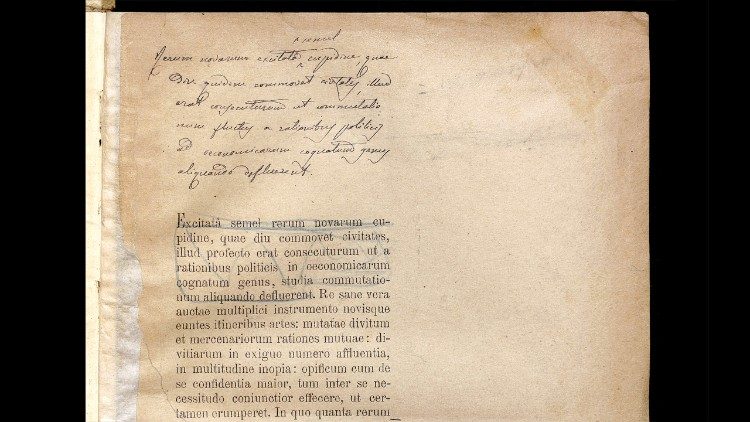 semel
Rerum novarum excitatâ cupidine, quae
Diu quidem commovet civitates, illud
erat consecuturum ut commutatio
num fluctus a rationibus politicis
ad oeconomicarum cognatum genus
aliquando defluerent.
Excitatâ semel rerum novarum cu-
pidine, quae diu commovet civitates,
illud profecto erat consecuturum ut a
rationibus politicis in oeconomicarum
cognatum genus, studia commutatio-
num aliquando defluerent. Re sane vera
auctae multiplici instrumento novisque
euntes itineribus artes: mutatae divitum
et mercenariorum rationes mutuae: di-
vitiarum in exiguo numero affluentia,
in multitudine inopia: opificum cum de
se confidentia maior, tum inter se ne-
cessitudo coniunctior effecere, ut cer-
tamen erumperet. In quo quanta rerum